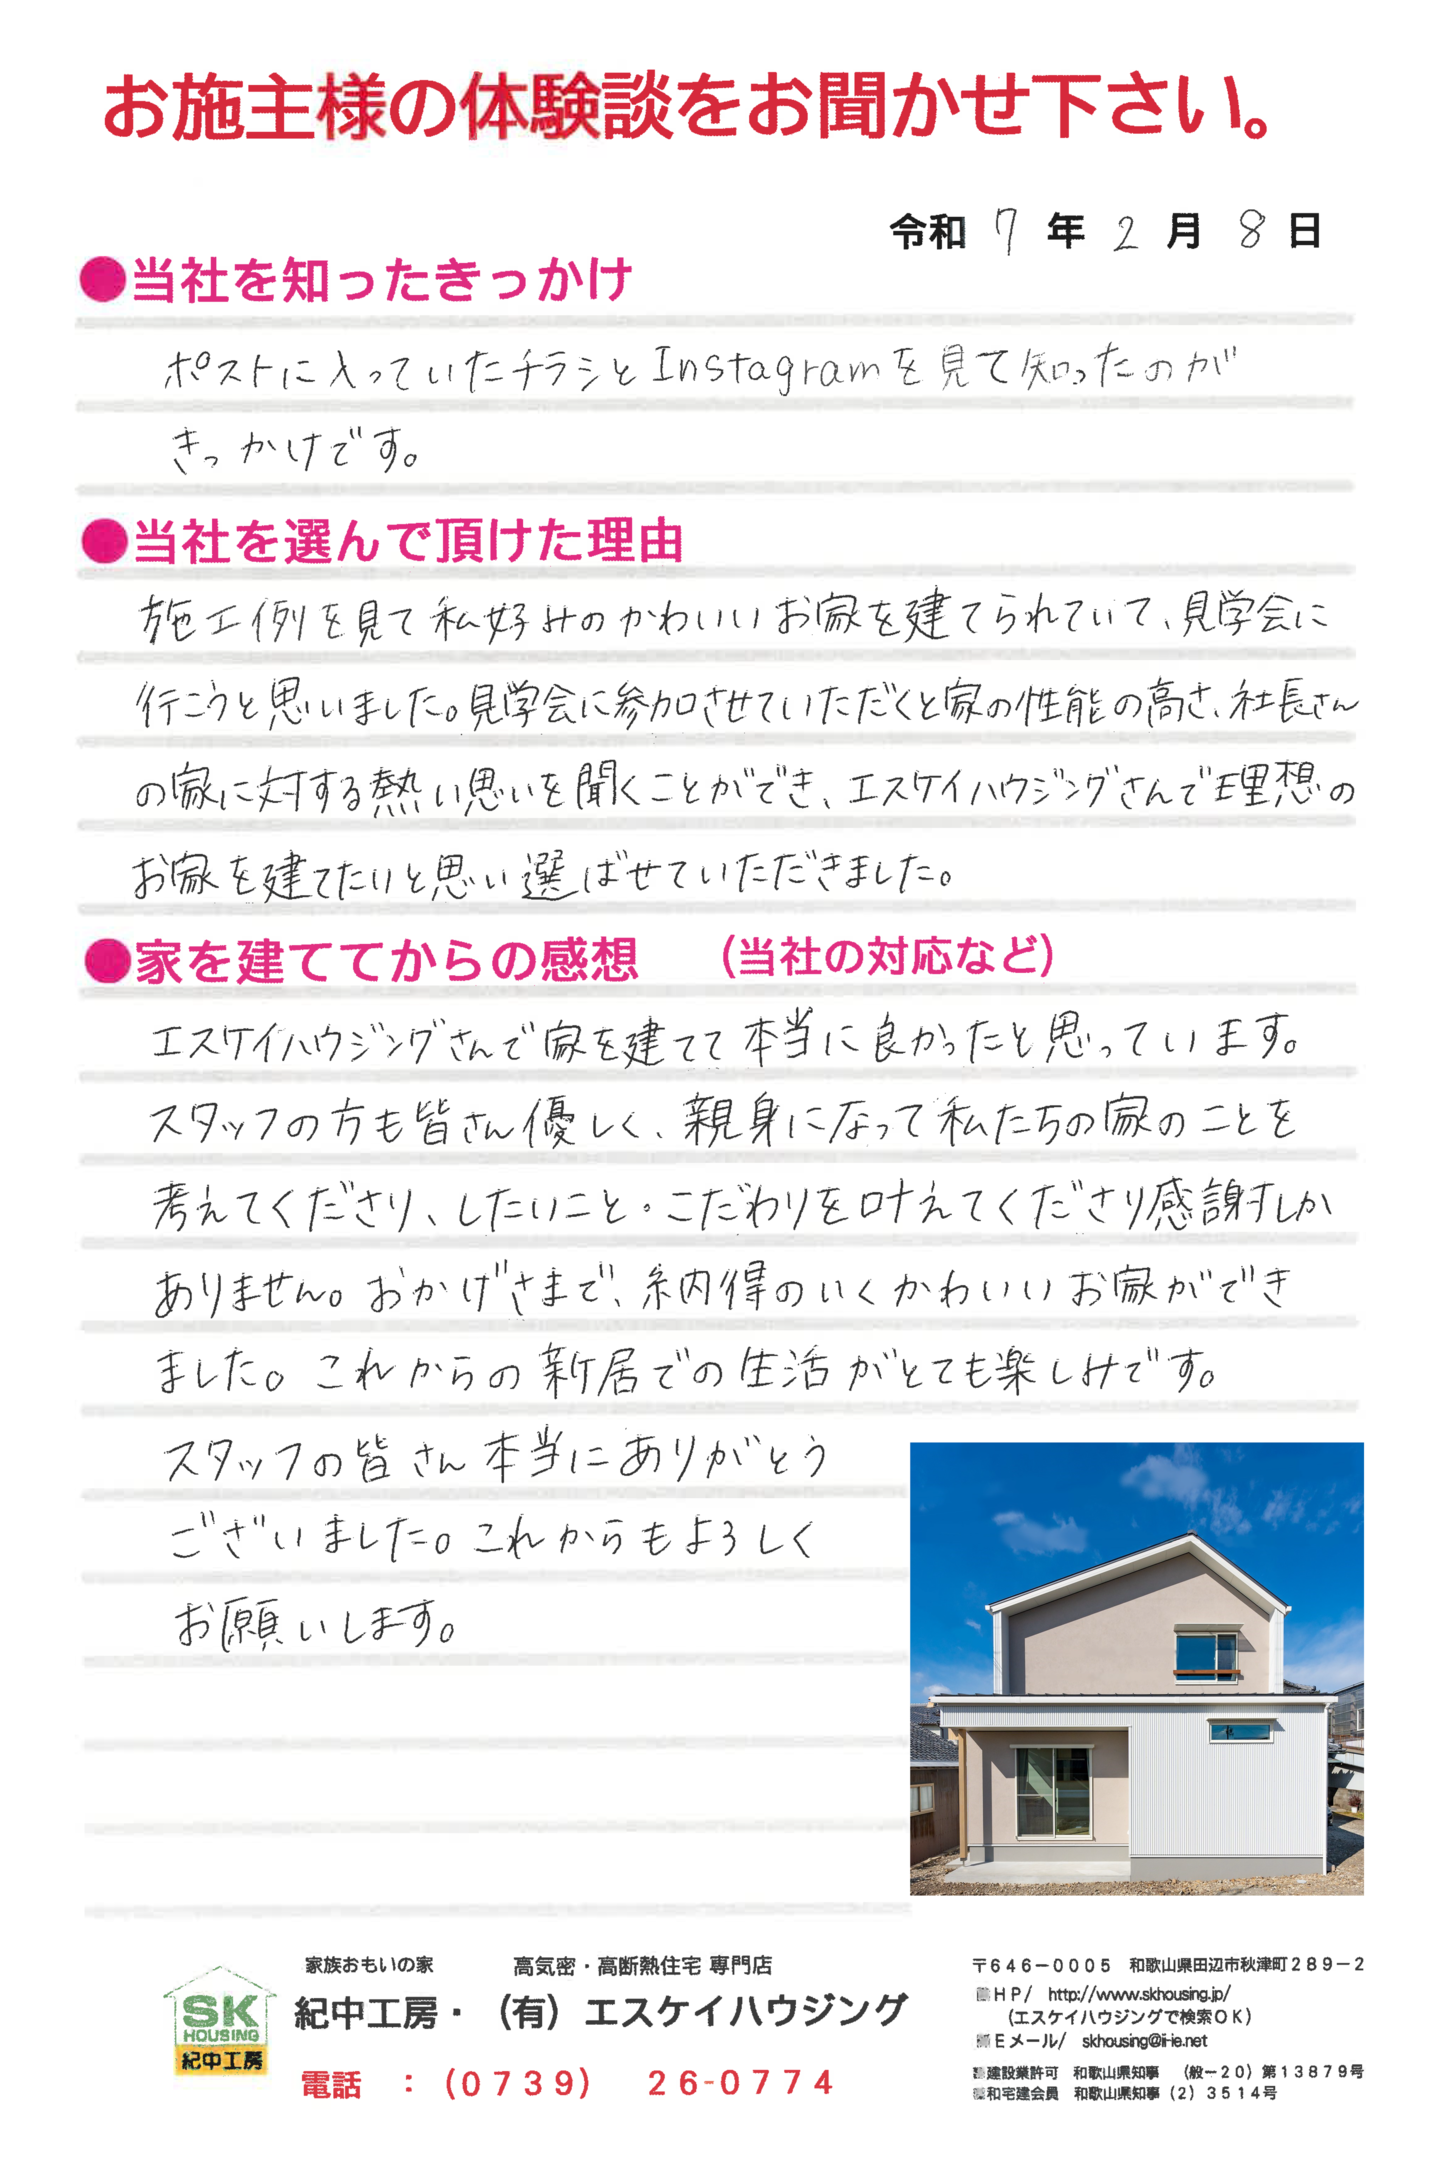 お施主様の体験談をお聞かせ下さい。
令和 7 年 2 月 8 日
●当社を知ったきっかけ
ポストに入っていたチラシとInstagramを見て知ったのが
きっかけです。
●当社を選んで頂けた理由
施工例を見て私好みのかわいいお家を建てられていて、見学会に
行こうと思いました。見学会に参加させていただくと家の性能の高さ、社長さん
の家に対する熱い思いを聞くことができ、エスケイハウジングさんで理想の
お家を建てたいと思い選ばせていただきました。
●家を建ててからの感想 （当社の対応など）
エスケイハウジングさんで家を建てて本当に良かったと思っています。
スタッフの方も皆さん優しく、親身になって私たちの家のことを
考えてくださり、したいこと。こだわりを叶えてくださり感謝しか
ありません。おかげさまで、納得のいくかわいいお家ができ
ました。これからの新居での生活がとても楽しみです。
スタッフの皆さん本当にありがとう
ございました。これからもよろしく
お願いします。
SK
HOUSING
紀中工房
家族おもいの家 高気密・高断熱住宅 専門店
紀中工房・（有）エスケイハウジング
電話 ：（0739） 26-0774
〒646－0005 和歌山県田辺市秋津町289－2
HP/ http://www.skhousing.jp/
（エスケイハウジングで検索OK）
Eメール/ skhousing@ii-ie.net
建設業許可 和歌山県知事 （般－20）第13879号
和宅建会員 和歌山県知事（2）3514号